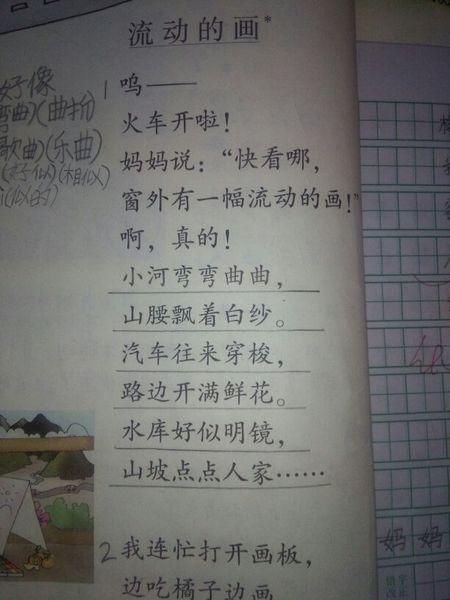 流动的画*
1 呜——
火车开啦！
妈妈说：“快看哪，
窗外有一幅流动的画！”
啊，真的！
小河弯弯曲曲，
山腰飘着白纱。
汽车往来穿梭，
路边开满鲜花。
水库好似明镜，
山坡点点人家……
2 我连忙打开画板，
边吃橘子边画
好像
弯曲)(曲折)
歌曲)(乐曲)
(好似)(相似)
(似的)
妈 妈